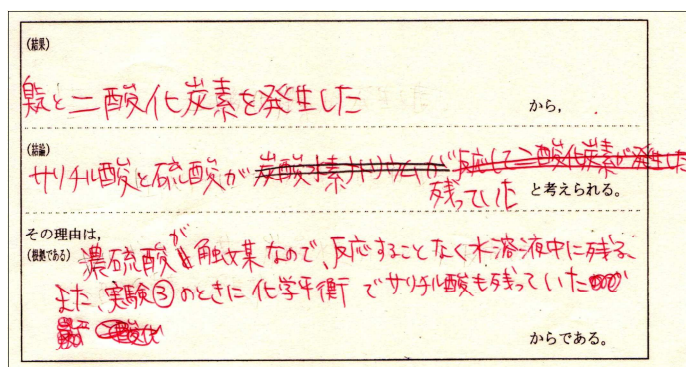 (結果)
気と二酸化炭素を発生した から,
(結論)
サリチル酸と硫酸が
残っていた と考えられる。
その理由は,
(根拠である) 濃硫酸が触媒なので、反応することなく水溶液中に残る
また、実験③のときに化学平衡でサリチル酸も残っていた
からである。